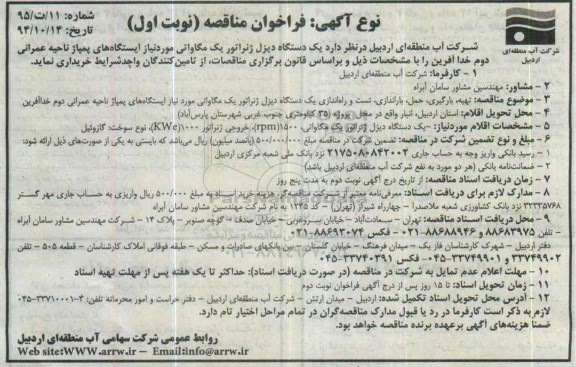 شماره: ۱۱/ت/۹۵
تاریخ: ۹۴/۱۰/۱۳
نوع آگهی: فراخوان مناقصه (نوبت اول)
شرکت آب منطقه‌ای
اردبیل
شرکت آب منطقه‌ای اردبیل درنظر دارد یک دستگاه دیزل ژنراتور یک مگاواتی موردنیاز ایستگاه‌های پمپاژ ناحیه عمرانی
دوم خدا آفرین را با مشخصات ذیل و براساس قانون برگزاری مناقصات، از تامین‌کنندگان واجدشرایط خریداری نماید.
۱ - کارفرما: شرکت آب منطقه‌ای اردبیل
۲ - مشاور: مهندسین مشاور سامان آبراه
۳ - موضوع مناقصه: تهیه، بارگیری، حمل، باراندازی، تست و راه‌اندازی یک دستگاه دیزل ژنراتور یک مگاواتی مورد نیاز ایستگاه‌های پمپاژ ناحیه عمرانی دوم خداآفرین
۴ - محل تحویل اقلام: استان اردبیل، انبار واقع در محل پروژه (۳۵ کیلومتری جنوب غربی شهرستان پارس‌آباد)
۵ - مشخصات اقلام موردنیاز: -یک دستگاه دیزل ژنراتور یک مگاواتی، ۱۵۰۰(rpm)، خروجی ژنراتور ۱۰۰۰(KWe)، نوع سوخت: گازوئیل
۶ - مبلغ و نوع تضمین شرکت در مناقصه: تضمین شرکت در مناقصه مبلغ ۵۰۰/۰۰۰/۰۰۰ (پانصد میلیون) ریال می‌باشد که بایستی به یکی از صورت‌های ذیل ارائه شود:
۱ - رسید بانکی واریز وجه به حساب جاری ۲۱۷۵۰۸۰۸۴۲۰۰۲ نزد بانک ملی شعبه مرکزی اردبیل
۲ - ضمانت‌نامه بانکی (هر دو مورد به نفع شرکت آب منطقه‌ای اردبیل باشد)
۷ - زمان دریافت اسناد مناقصه: از تاریخ درج آگهی نوبت دوم به مدت پنج روز
۸ - مدارک لازم برای دریافت اسناد: معرفی‌نامه معتبر از شرکت مناقصه‌گر، هزینه خرید اسناد به مبلغ ۵۰۰/۰۰۰ ریال واریزی به حساب جاری مهر گستر
۳۲۳۳۵۷۶۸ نزد بانک کشاورزی شعبه ملاصدرا - چهارراه شیراز (تهران) - کد ۱۳۳۵ به نام شرکت مهندسین مشاور سامان آبراه
۹ - محل دریافت اسناد مناقصه: تهران - سعادت‌آباد - خیابان سرو غربی - خیابان صدف - کوچه صنوبر - پلاک ۱۴ - شرکت مهندسین مشاور سامان آبراه
- تلفن ۸۸۶۸۳۹۷۵ و ۸۸۶۸۸۹۴۶-۰۲۱ - فکس ۸۸۶۹۳۰۷۴-۰۲۱
دفتر اردبیل - شهرک کارشناسان فاز یک - میدان فرهنگ - خیابان گلستان - بین بانکهای صادرات و مسکن - طبقه فوقانی املاک کارشناسان - قطعه ۵۰۵ - تلفن
۳۳۷۴۹۹۰۲ و ۳۳۷۴۹۹۰۱-۰۴۵ - فکس ۳۳۷۴۰۳۹۱-۰۴۵
۱۰ - مهلت اعلام عدم تمایل به شرکت در مناقصه (در صورت دریافت اسناد): حداکثر تا یک هفته پس از مهلت تهیه اسناد
۱۱ - زمان تحویل اسناد: تا ۱۵ روز پس از درج آگهی فراخوان نوبت دوم
۱۲ - آدرس محل تحویل اسناد تکمیل شده: اردبیل - میدان ارتش - شرکت آب منطقه‌ای اردبیل - دفتر حراست و امور محرمانه تلفن: ۴-۳۳۷۱۰۰۰۱-۰۴۵
لازم به ذکر است کارفرما در رد یا قبول مدارک مناقصه‌گران در تمام مراحل اختیار تام دارد.
ضمنا هزینه‌های آگهی برعهده برنده مناقصه خواهد بود.
روابط عمومی شرکت سهامی آب منطقه‌ای اردبیل
Web site:WWW.arrw.ir — Email:info@arrw.ir